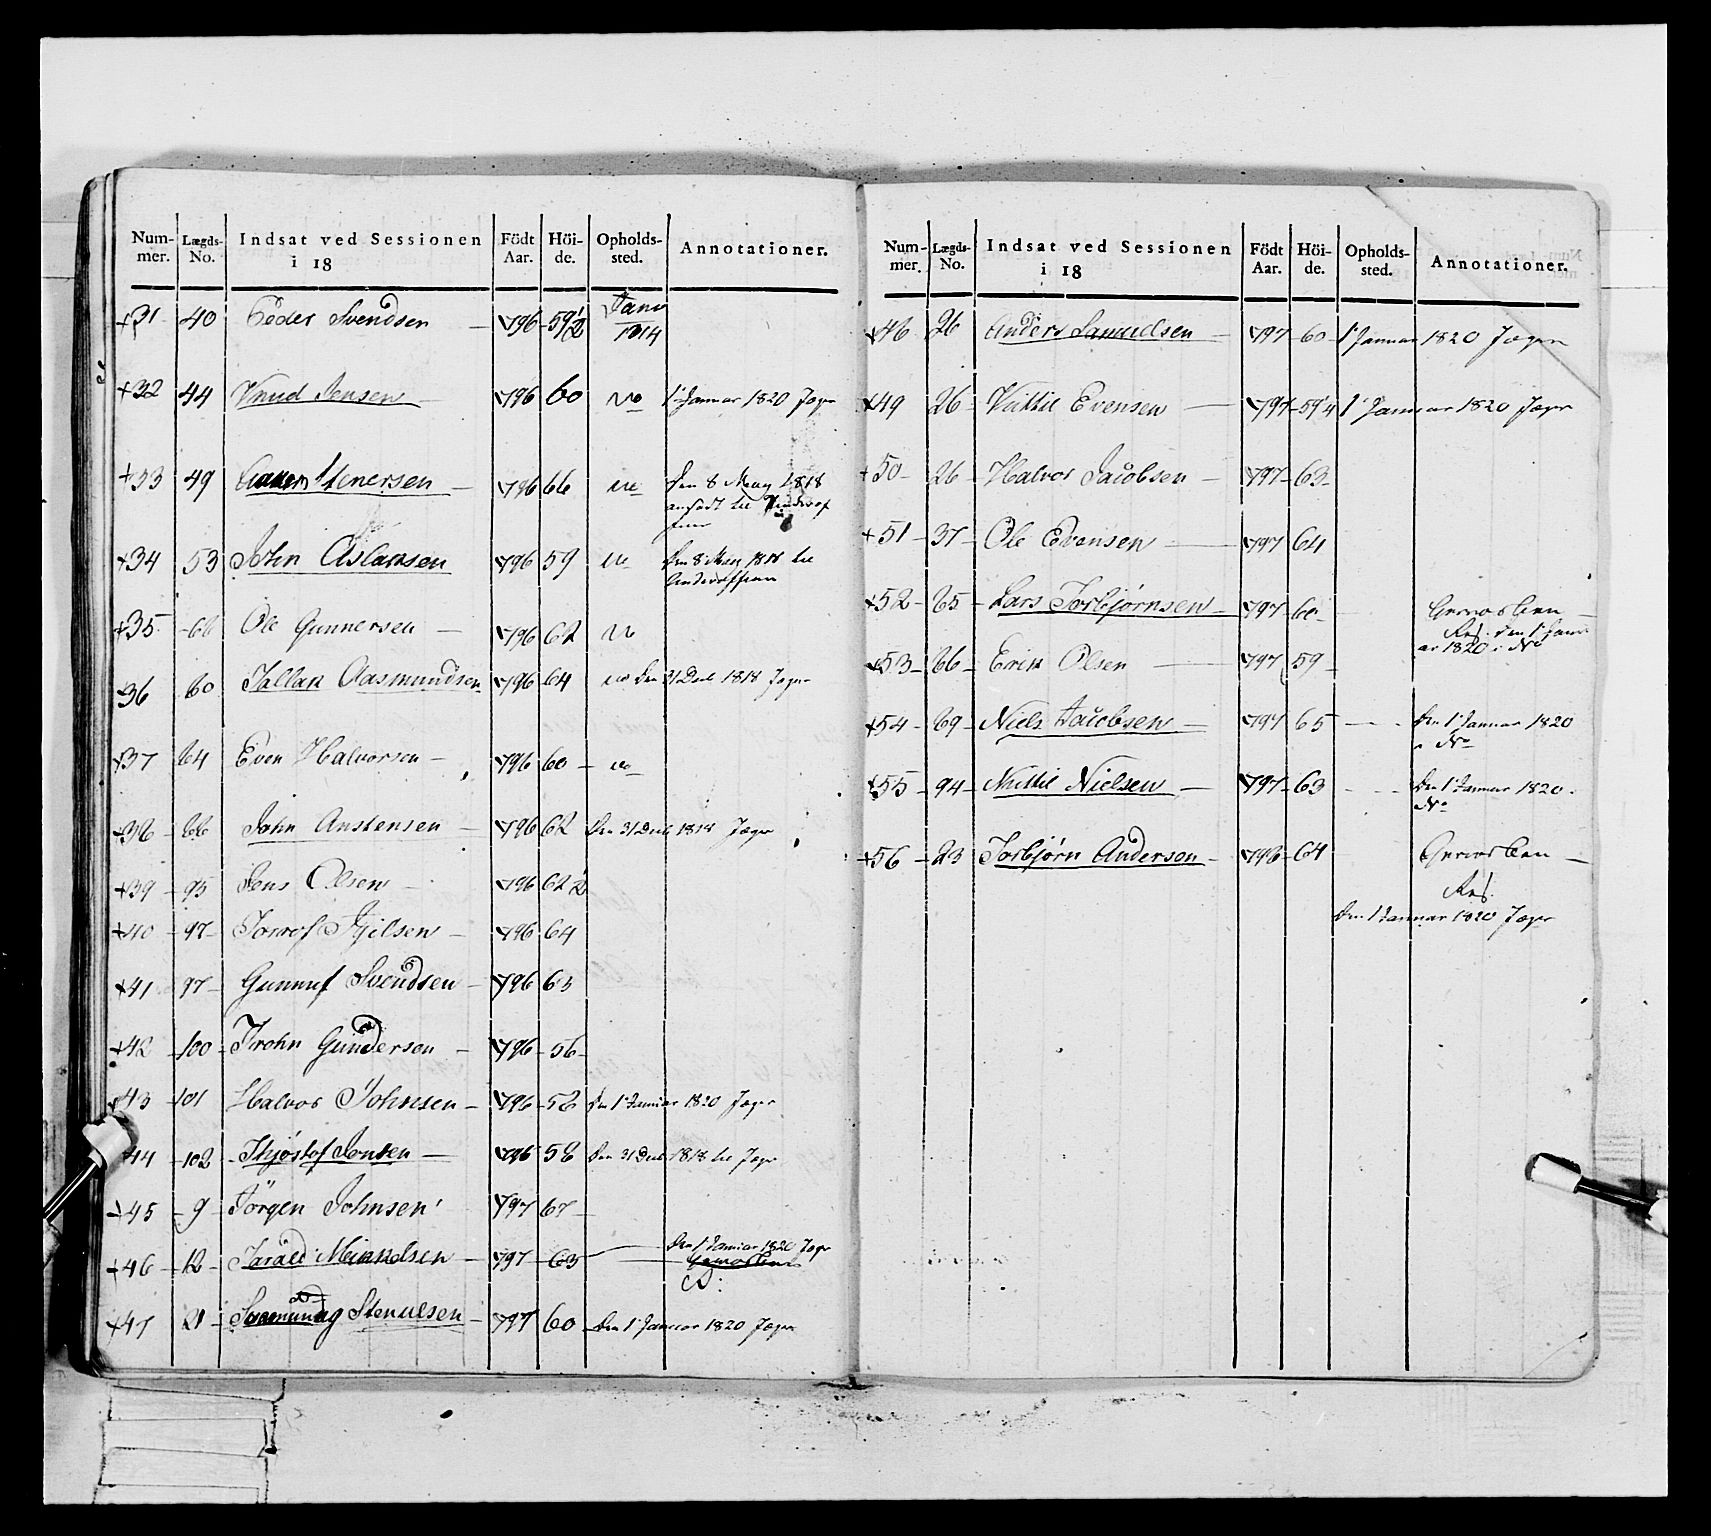 Num-mer. Lægds-No. Indsat ved Sessionen i 18 Födt Aar. Höi-de. Opholds-sted. Annotationer.
+31 40 Peder Svendsen – 796 59 1/2 Janv 1814
+32 44 Knud Jensen – 796 60 No 1 Januar 1820 Jæger
+33 49 Stenersen – 796 66 Den 8 May 1818
ansadt til Underof
34 53 John Aslaksen 796 59 Den 8 May 1818 til
Underoffiseer
+35 66 Ole Gunnersen – 796 62 No
36 60 Tallak Aasmundsen 796 64 No Den 31 Decb 1818 Jæger
+37 64 Even Halvorsen – 796 60 – No
+38 66 John Anstensen – 796 62 Den 31 Decb 1818 Jæger
+39 – 95 Jens Olsen – 796 62 1/2
+40 – 97 – Torrof Kjilsen – 796 64
+41 – 97 – Gunnuf Svendsen – 796 63
+42 – 100 – Trohn Gunderson – 796 – 56 –
43 101 Halvor Johnsen – 796 – 58 Den 1 Januar 1820 Jæger
44 – 102 – Thjöstof Jonsen – 796 58 Den 31 Decb 1818 til Jæger
+45 – 9 – Jörgen Johnsen 797 67 –
+46 – 12 – Tarald – 797 – 63 Den 1 Januar 1820 Jæger
+47 – 21 – – 797 60 – Den 1 Januar 1820 Jæger
Num-mer. Lægds-No. Indsat ved Sessionen i 18 Födt Aar. Höi-de. Opholds-sted. Annotationer.
+48 – 26 – Anders Samuelsen – 797 – 60 – 1 Januar 1820 Jæger
+49 26 – Kittil Evensen – 797 – 59 1/4 1 Januar 1820 Jæger
+50 – 26 – Halvor Jacobsen – 797 – 63 –
+51 – 37 – Ole Evensen – 797 64
+52 – 65 – Lars Torbjørnsen – 797 60 – Geworben –
Res. den 1 Janu
ar 1820 No
+53 – 66 – Erik Olsen – 797 59 –
+54 – 69 – Niels Jacobsen – 797 65 – Den 1 Januar 1820
No
+55 – 94 – Kittil Nielsen – 797 – 63 – Den 1 Januar 1820.
No
+56 – 23 – Torbjørn Anderson – 798 – 64 Geworben –
Res.
Den 1 Januar 1820 Jæger